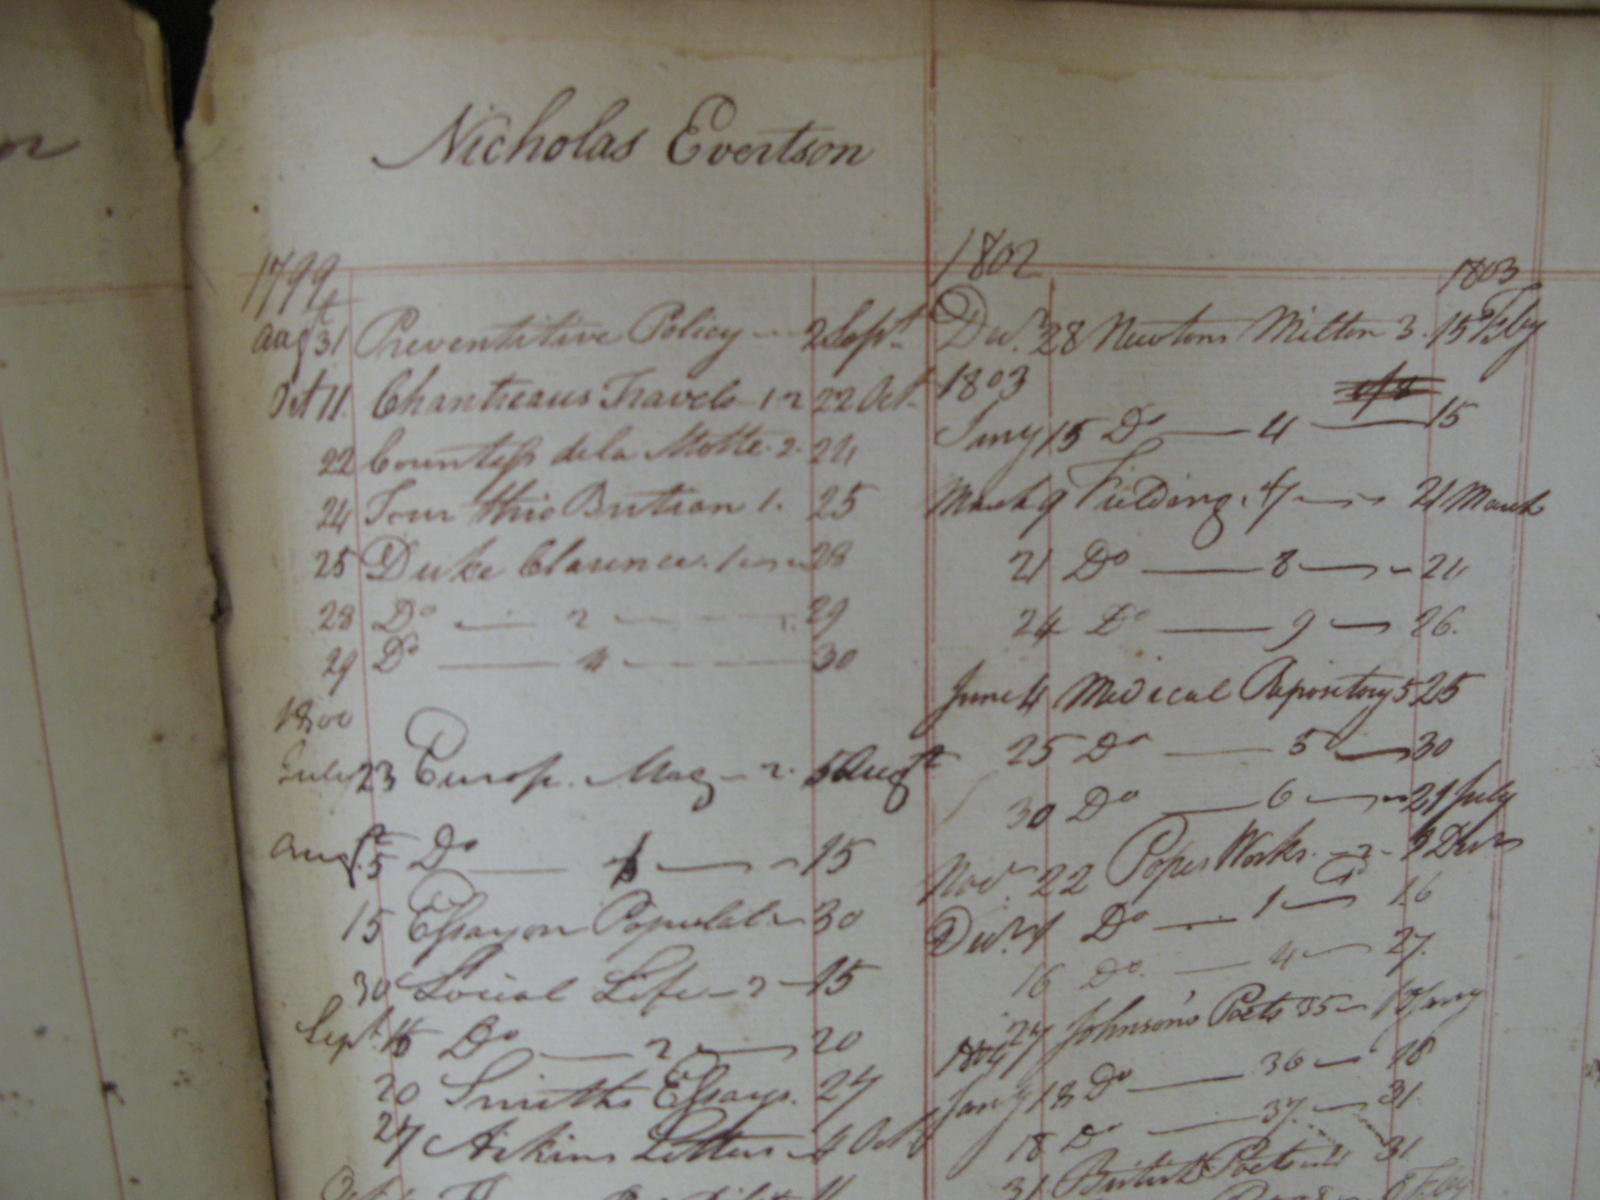 Nicholas Evertson
1799
Augt 31 Preventitive Policy 2 Sept
Oct 11 Chantreaus Travels 1 2 22 Oct
22 Countess de la Motte 2 24
24 Tour thro Britian 1. 25
25 Duke Clarence 1 28
28 Do 2 29
29 Do 4 30
1800
July 23 Europ. Mag 2 5 Augt
Augt 5 Do 15
15 Essay on Populat 30
30 Social Life 15
Sept Do 2 20
20 Smiths Essays. 27
27 Aikins Letters 4 Oct
1802 1803
Decr 28 Newtons Milton 3. 15 Feby
1803
Jany 15 Do 4 15
March 9 Fielding 7 21 March
21 Do 8 24
24 Do 9 26.
June 4 Medical Repository 5 25
25 Do 5 30
30 Do 6 21 July
Novr 22 Popes Works 2 9 Decr
Decr Do 1 16
16 Do 4 27.
27 Johnson's Poets 35 18 Jany
1804
Jany 18 Do 36 18
18 Do 37 31
31 British Poets 31